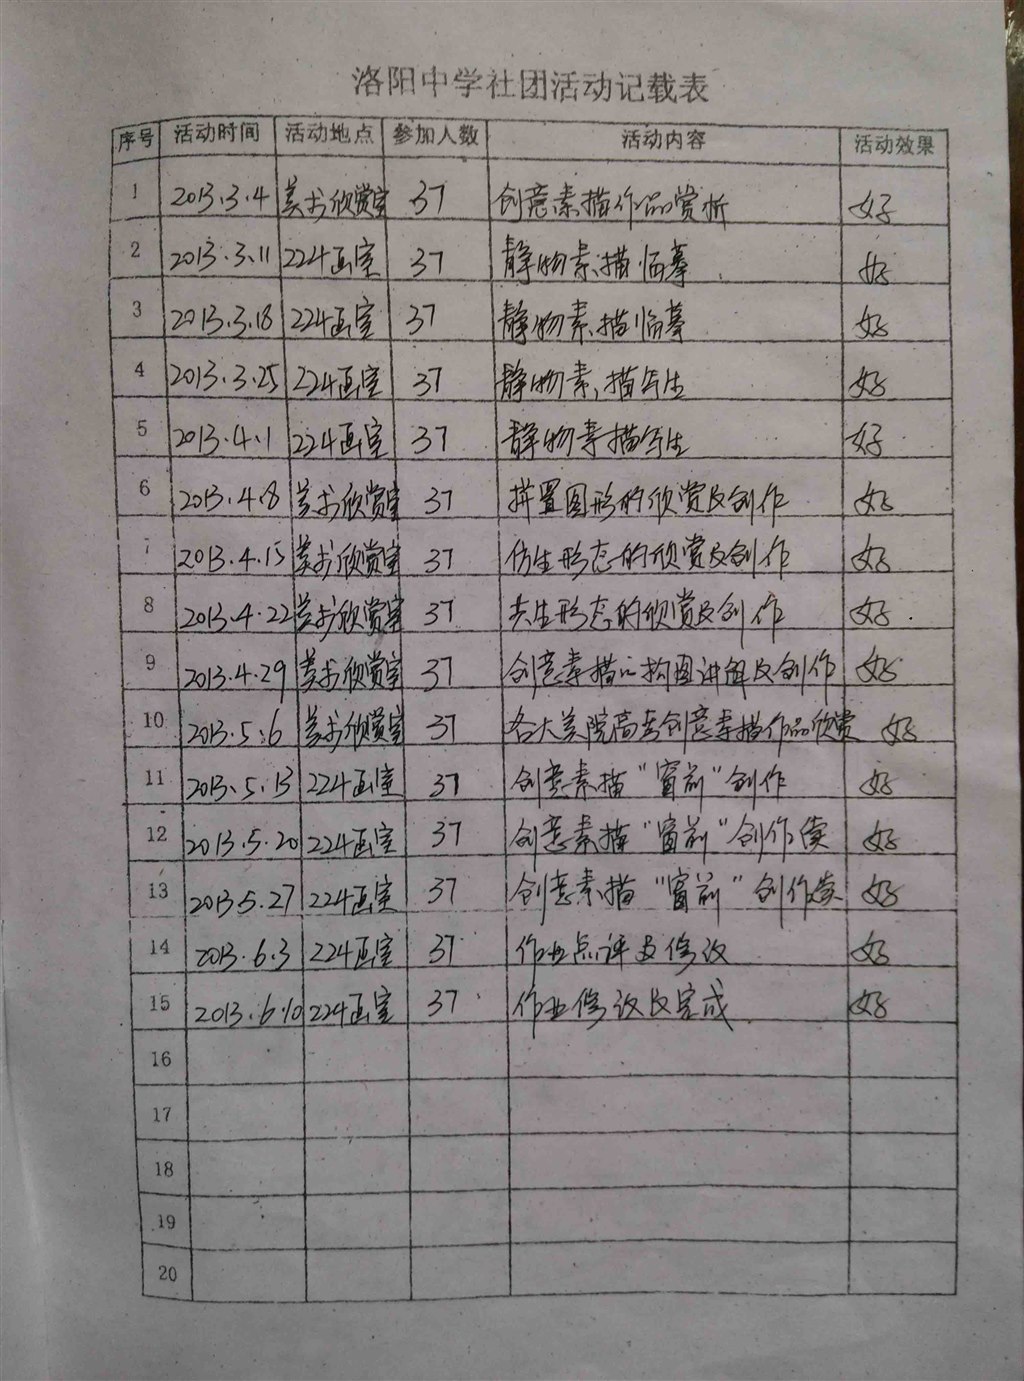 洛阳中学社团活动记载表
序号 活动时间 活动地点 参加人数 活动内容 活动效果
1 2013.3.4 美术欣赏室 37 创意素描作品赏析 好
2 2013.3.11 224画室 37 静物素描临摹 好
3 2013.3.18 224画室 37 静物素描临摹 好
4 2013.3.25 224画室 37 静物素描写生 好
5 2013.4.1 224画室 37 静物素描写生 好
6 2013.4.8 美术欣赏室 37 拼置图形的欣赏及创作 好
7 2013.4.15 美术欣赏室 37 仿生形态的欣赏及创作 好
8 2013.4.22 美术欣赏室 37 共生形态的欣赏及创作 好
9 2013.4.29 美术欣赏室 37 创意素描的构图讲解及创作 好
10 2013.5.6 美术欣赏室 37 各大美院高考创意素描作品欣赏 好
11 2013.5.13 224画室 37 创意素描“窗前”创作 好
12 2013.5.20 224画室 37 创意素描“窗前”创作续 好
13 2013.5.27 224画室 37 创意素描“窗前”创作续 好
14 2013.6.3 224画室 37 作业点评及修改 好
15 2013.6.10 224画室 37 作业修改及完成 好
16
17
18
19
20